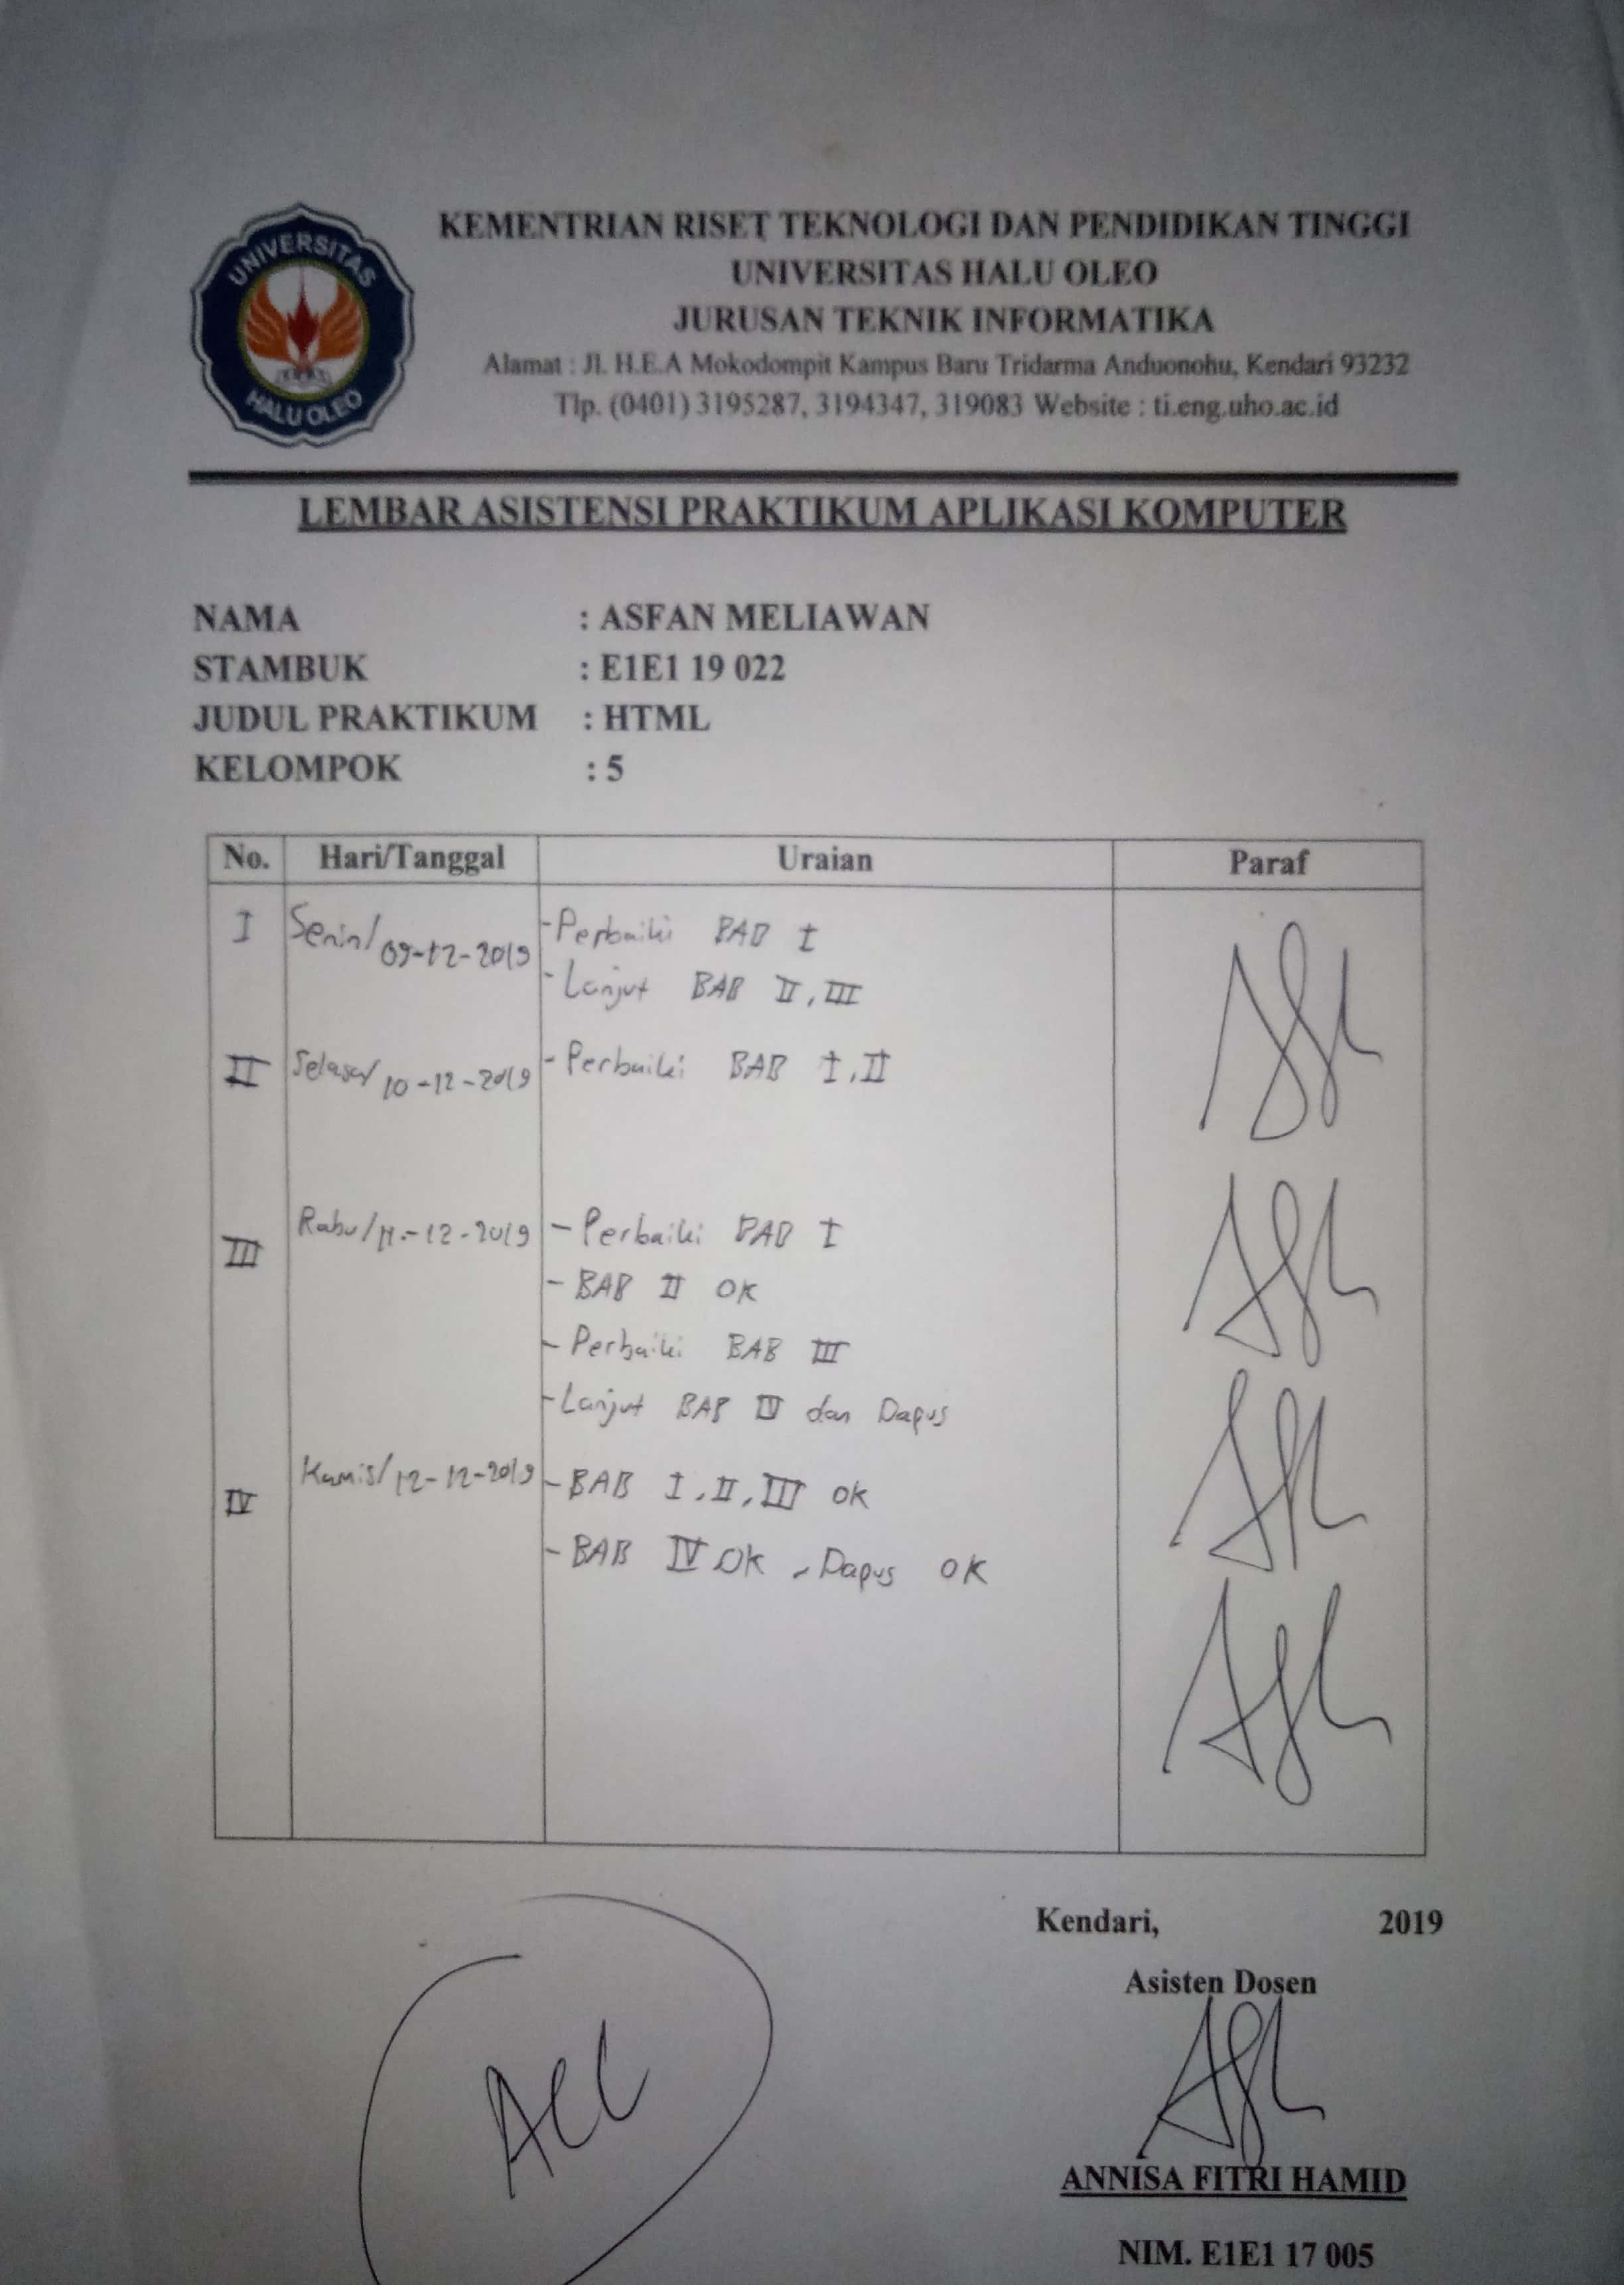 UNIVERSITAS
HALU OLEO
KEMENTRIAN RISET TEKNOLOGI DAN PENDIDIKAN TINGGI
UNIVERSITAS HALU OLEO
JURUSAN TEKNIK INFORMATIKA
Alamat : Jl. H.E.A Mokodompit Kampus Baru Tridarma Anduonohu, Kendari 93232
Tlp. (0401) 3195287, 3194347, 319083 Website : ti.eng.uho.ac.id
LEMBAR ASISTENSI PRAKTIKUM APLIKASI KOMPUTER
NAMA : ASFAN MELIAWAN
STAMBUK : E1E1 19 022
JUDUL PRAKTIKUM : HTML
KELOMPOK : 5
No. Hari/Tanggal Uraian Paraf
I Senin/09-12-2019 - Perbaiki BAB I
- Lanjut BAB II, III
II Selasa/10-12-2019 - Perbaiki BAB I, II
III Rabu/11-12-2019 - Perbaiki BAB I
- BAB II OK
- Perbaiki BAB III
- Lanjut BAB IV dan Dapus
IV Kamis/12-12-2019 - BAB I, II, III OK
- BAB IV OK - Dapus OK
Kendari, 2019
Asisten Dosen
ACC
ANNISA FITRI HAMID
NIM. E1E1 17 005